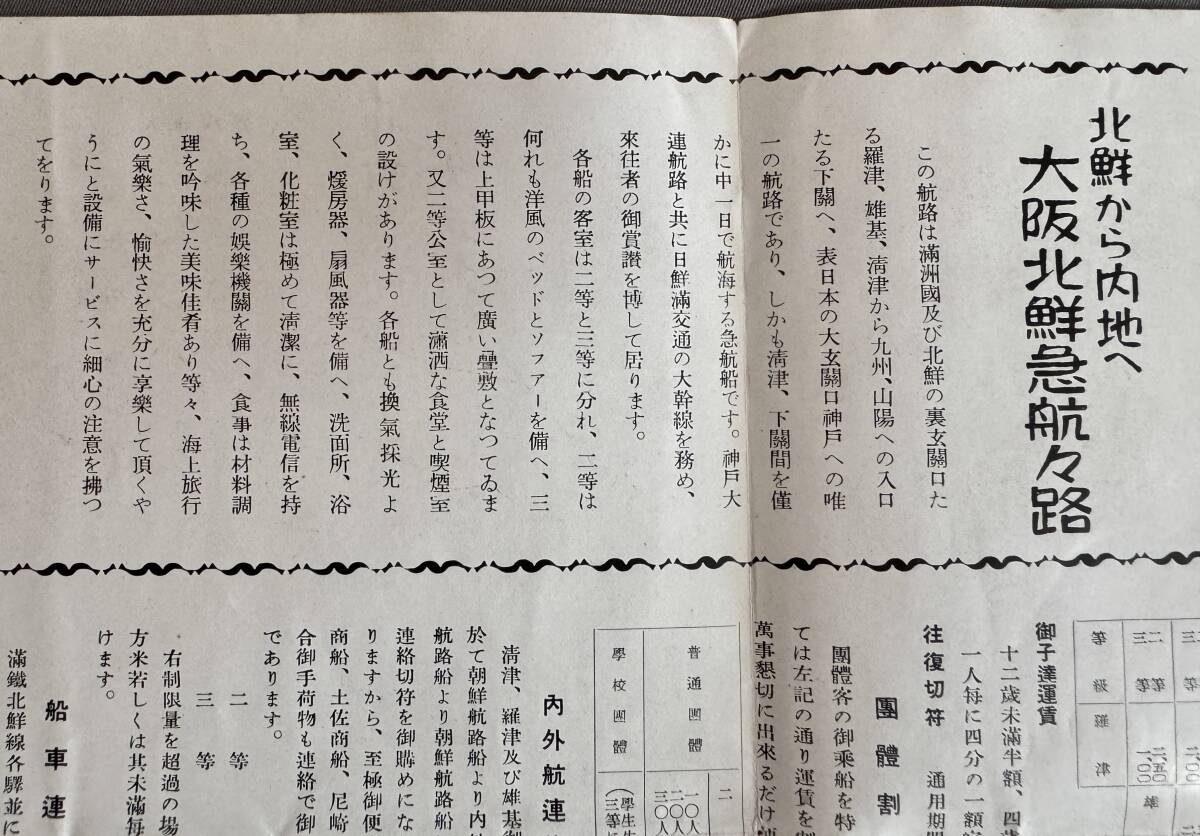 北鮮から内地へ
大阪北鮮急航々路
この航路は滿洲國及び北鮮の裏玄關口た
る羅津、雄基、淸津から九州、山陽への入口
たる下關へ、表日本の大玄關口神戶への唯
一の航路であり、しかも淸津、下關間を僅
かに中一日で航海する急航船です。神戶大
連航路と共に日鮮滿交通の大幹線を務め、
來往者の御賞讃を博して居ります。
各船の客室は二等と三等に分れ、二等は
何れも洋風のベッドとソファーを備へ、三
等は上甲板にあつて廣い疊敷となつてゐま
す。又二等公室として瀟洒な食堂と喫煙室
の設けがあります。各船とも換氣採光よ
く、煖房器、扇風器等を備へ、洗面所、浴
室、化粧室は極めて淸潔に、無線電信を持
ち、各種の娛樂機關を備へ、食事は材料調
理を吟味した美味佳肴あり等々、海上旅行
の氣樂さ、愉快さを充分に享樂して頂くや
うにと設備にサービスに細心の注意を拂つ
てをります。
等級
羅津
雄
二等
二、五〇
三等
一、〇〇
御子達運賃
十二歲未滿半額、四歲
一人每に四分の一額
往復切符
通用期間
團體割
團體客の御乘船を特
ては左記の通り運賃を割
萬事懇切に出來るだけ
普通團體
一〇人
二〇人
三〇人
學校團體
二
內外航連
淸津、羅津及び雄基
於て朝鮮航路船より內
航路船より朝鮮航路船
連絡切符を御購めにな
りますから、至極御便
商船、土佐商船、尼崎
合御手荷物も連絡で御
であります。
二等
三等
右制限量を超過の場
方米若しくは其未滿每
けます。
船車連
滿鐵北鮮線各驛並に